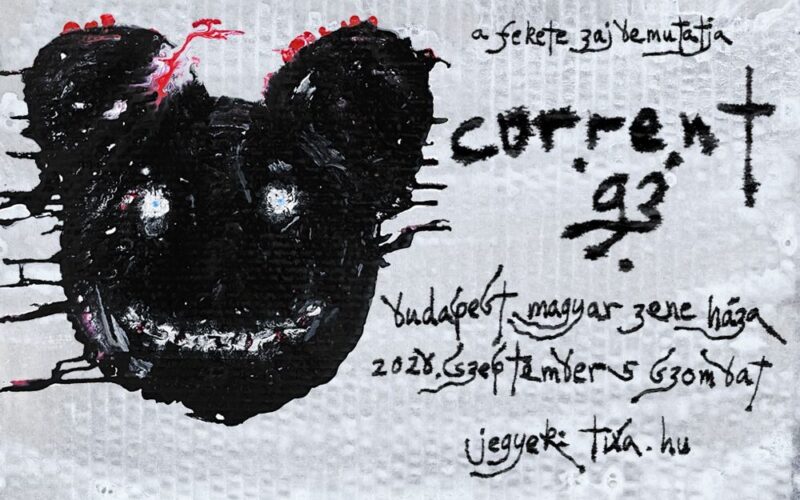 a fekete zaj bemutatja
current
93
budapest magyar zene háza
2026. szeptember 5 szombat
jegyek: tixa.hu